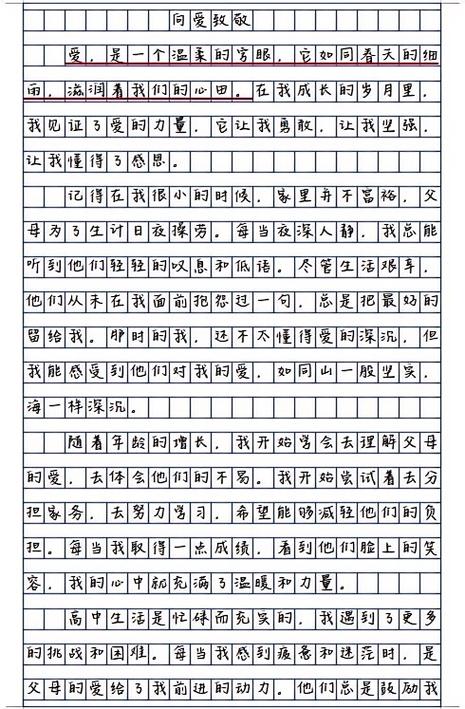 向爱致敬
爱，是一个温柔的字眼，它如同春天的细
雨，滋润着我们的心田。在我成长的岁月里，
我见证了爱的力量，它让我勇敢，让我坚强，
让我懂得了感恩。
记得在我很小的时候，家里并不富裕，父
母为了生计日夜操劳。每当夜深人静，我总能
听到他们轻轻的叹息和低语。尽管生活艰辛，
他们从未在我面前抱怨过一句，总是把最好的
留给我。那时的我，还不太懂得爱的深沉，但
我能感受到他们对我的爱，如同山一般坚实，
海一样深沉。
随着年龄的增长，我开始学会去理解父母
的爱，去体会他们的不易。我开始尝试着去分
担家务，去努力学习，希望能够减轻他们的负
担。每当我取得一点成绩，看到他们脸上的笑
容，我的心中就充满了温暖和力量。
高中生活是忙碌而充实的，我遇到了更多
的挑战和困难。每当我感到疲惫和迷茫时，是
父母的爱给了我前进的动力。他们总是鼓励我